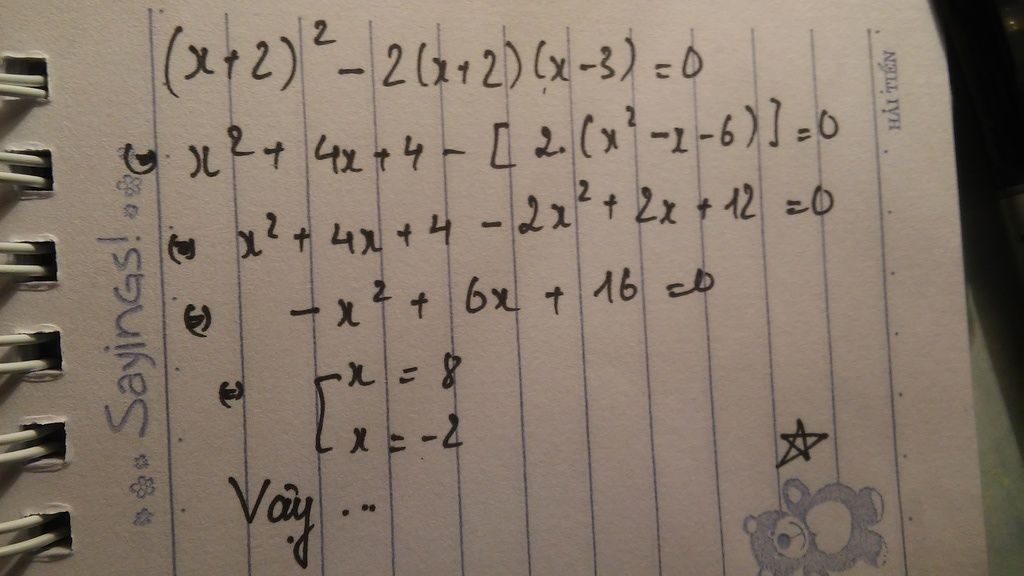 (x+2)² - 2(x+2)(x-3) = 0
⇔ x² + 4x + 4 - [2.(x² - x - 6)] = 0
⇔ x² + 4x + 4 - 2x² + 2x + 12 = 0
⇔ - x² + 6x + 16 = 0
⇔ [ x = 8
x = -2
Vậy ...
Sayings!
HẢI TIẾN